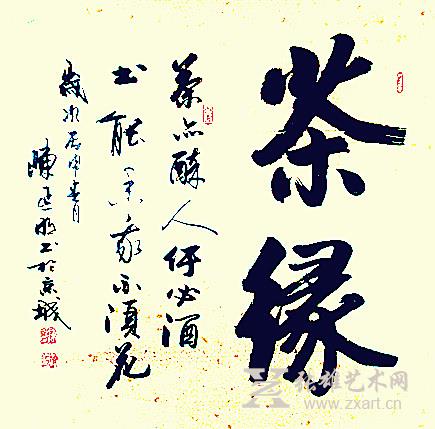 茶缘
茶亦醉人何必酒
书能香我不须花
岁次丙申春月
陈 书于京城
张雄艺术网
www.zxart.cn